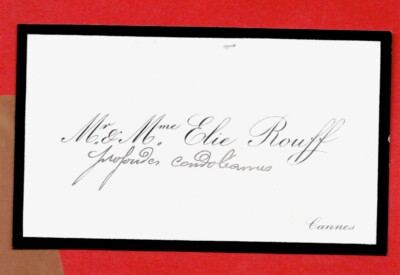 Mr. & Mme Elie Rouff
profondes condoléances
Cannes